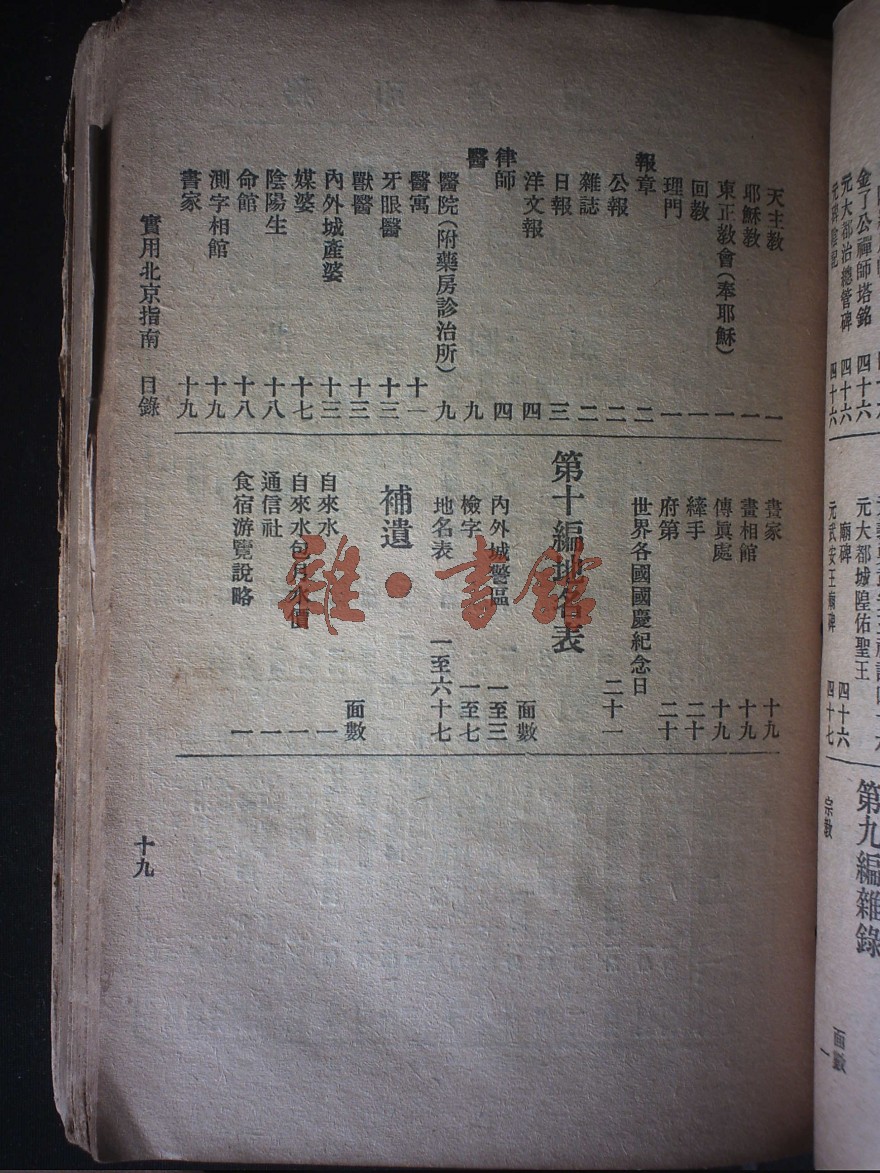 金了公禪師塔銘 四十六
元大都治總管碑 四十六
元大都城隍佑聖王
廟碑 四十六
元武安王廟碑 四十七
第九編雜錄
面數
宗教 一
天主教 一
耶穌教 一
東正教會(奉耶穌) 一
回教 一
理門 一
報章 二
公報 二
雜誌 二
日報 三
洋文報 四
律師 四
醫 九
醫院(附藥房診治所) 九
醫寓 十一
牙眼醫 十三
獸醫 十三
內外城產婆 十三
媒婆 十七
陰陽生 十八
命館 十八
測字相館 十九
書家 十九
畫家 十九
畫相館 十九
傳眞處 十九
縴手 二十
府第 二十
世界各國國慶紀念日
二十一
第十編地名表
面數
內外城警區 一至三
檢字 一至七
地名表 一至六十七
補遺
面數
自來水 一
自來水包月水價 一
通信社 一
食宿游覽說略 一
實用北京指南 目錄
十九
雜·書館